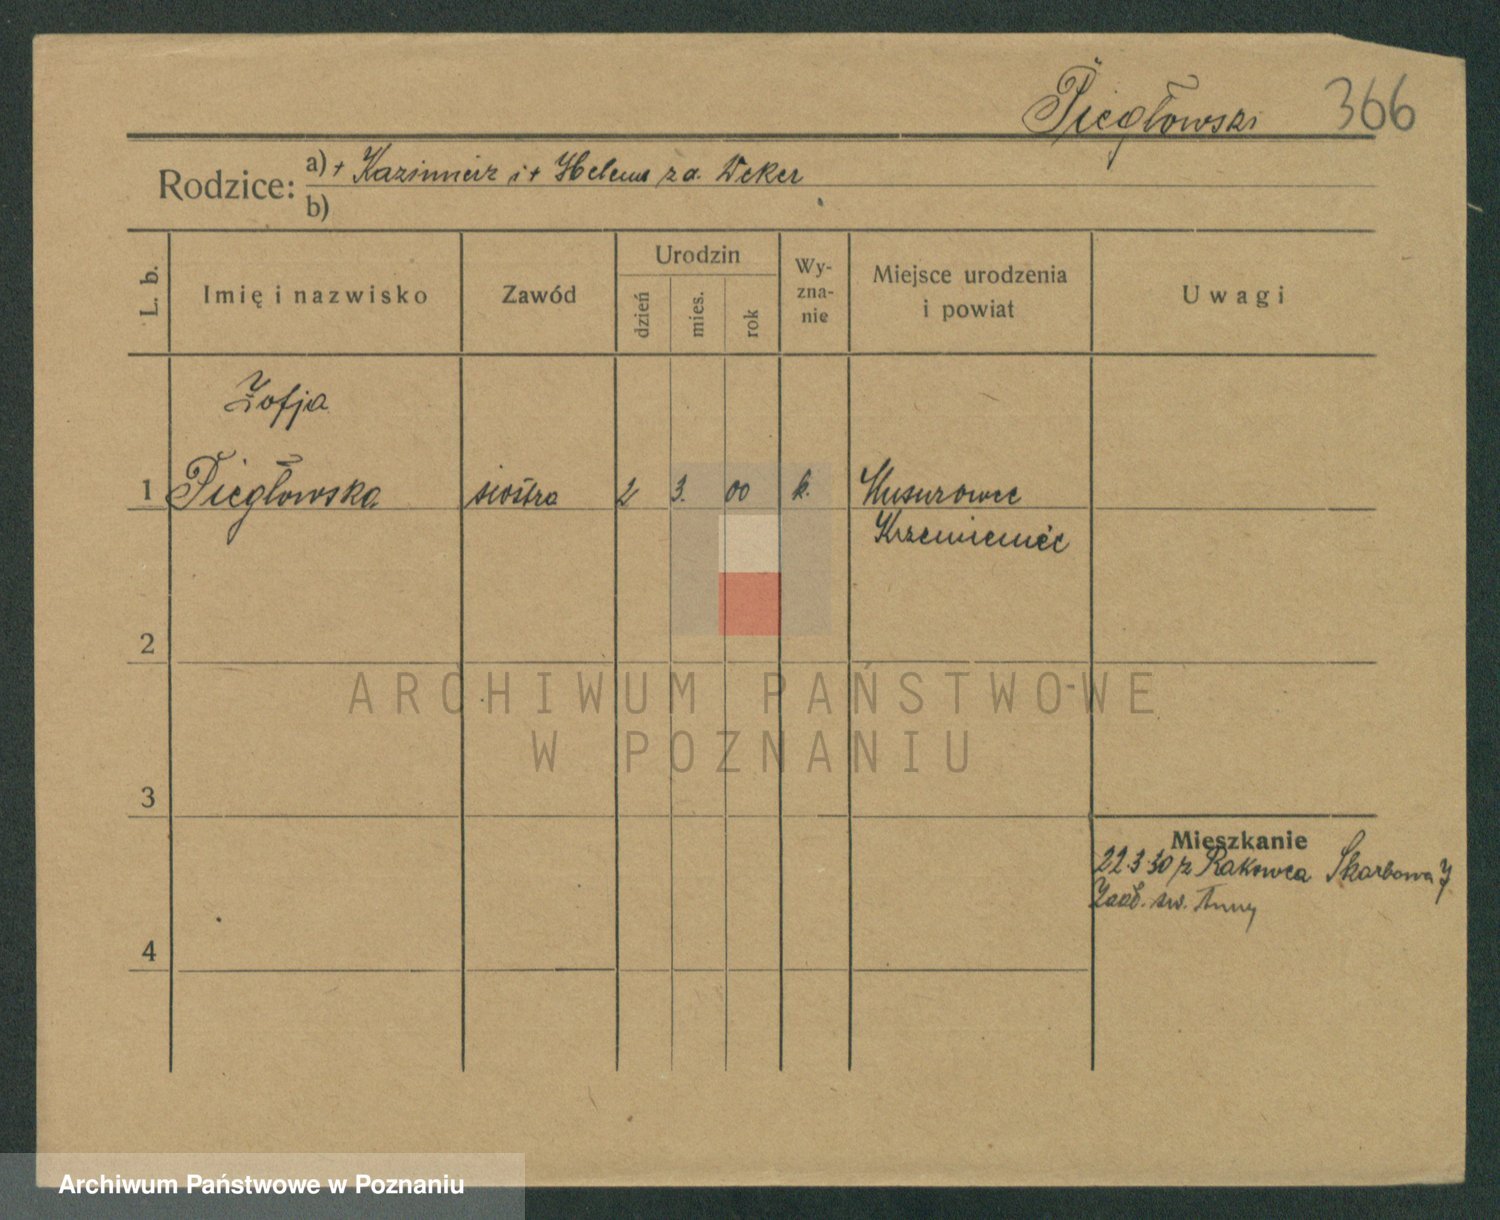 Piegłowski 366
Rodzice: a) + Kazimierz i + Helena za. Weker
b)
L. b. Imię i nazwisko Zawód Urodzin dzień mies. rok Wy-zna-nie Miejsce urodzenia i powiat Uwagi
Zofja
1 Piegłowska siostra 2 3. 00 k.
Krzemieniec
2
ARCHIWUM PAŃSTWOWE
W POZNANIU
3
Mieszkanie
22.3.30 z Rakowca Skarbowa
Zakł. św. Anny
4
Archiwum Państwowe w Poznaniu